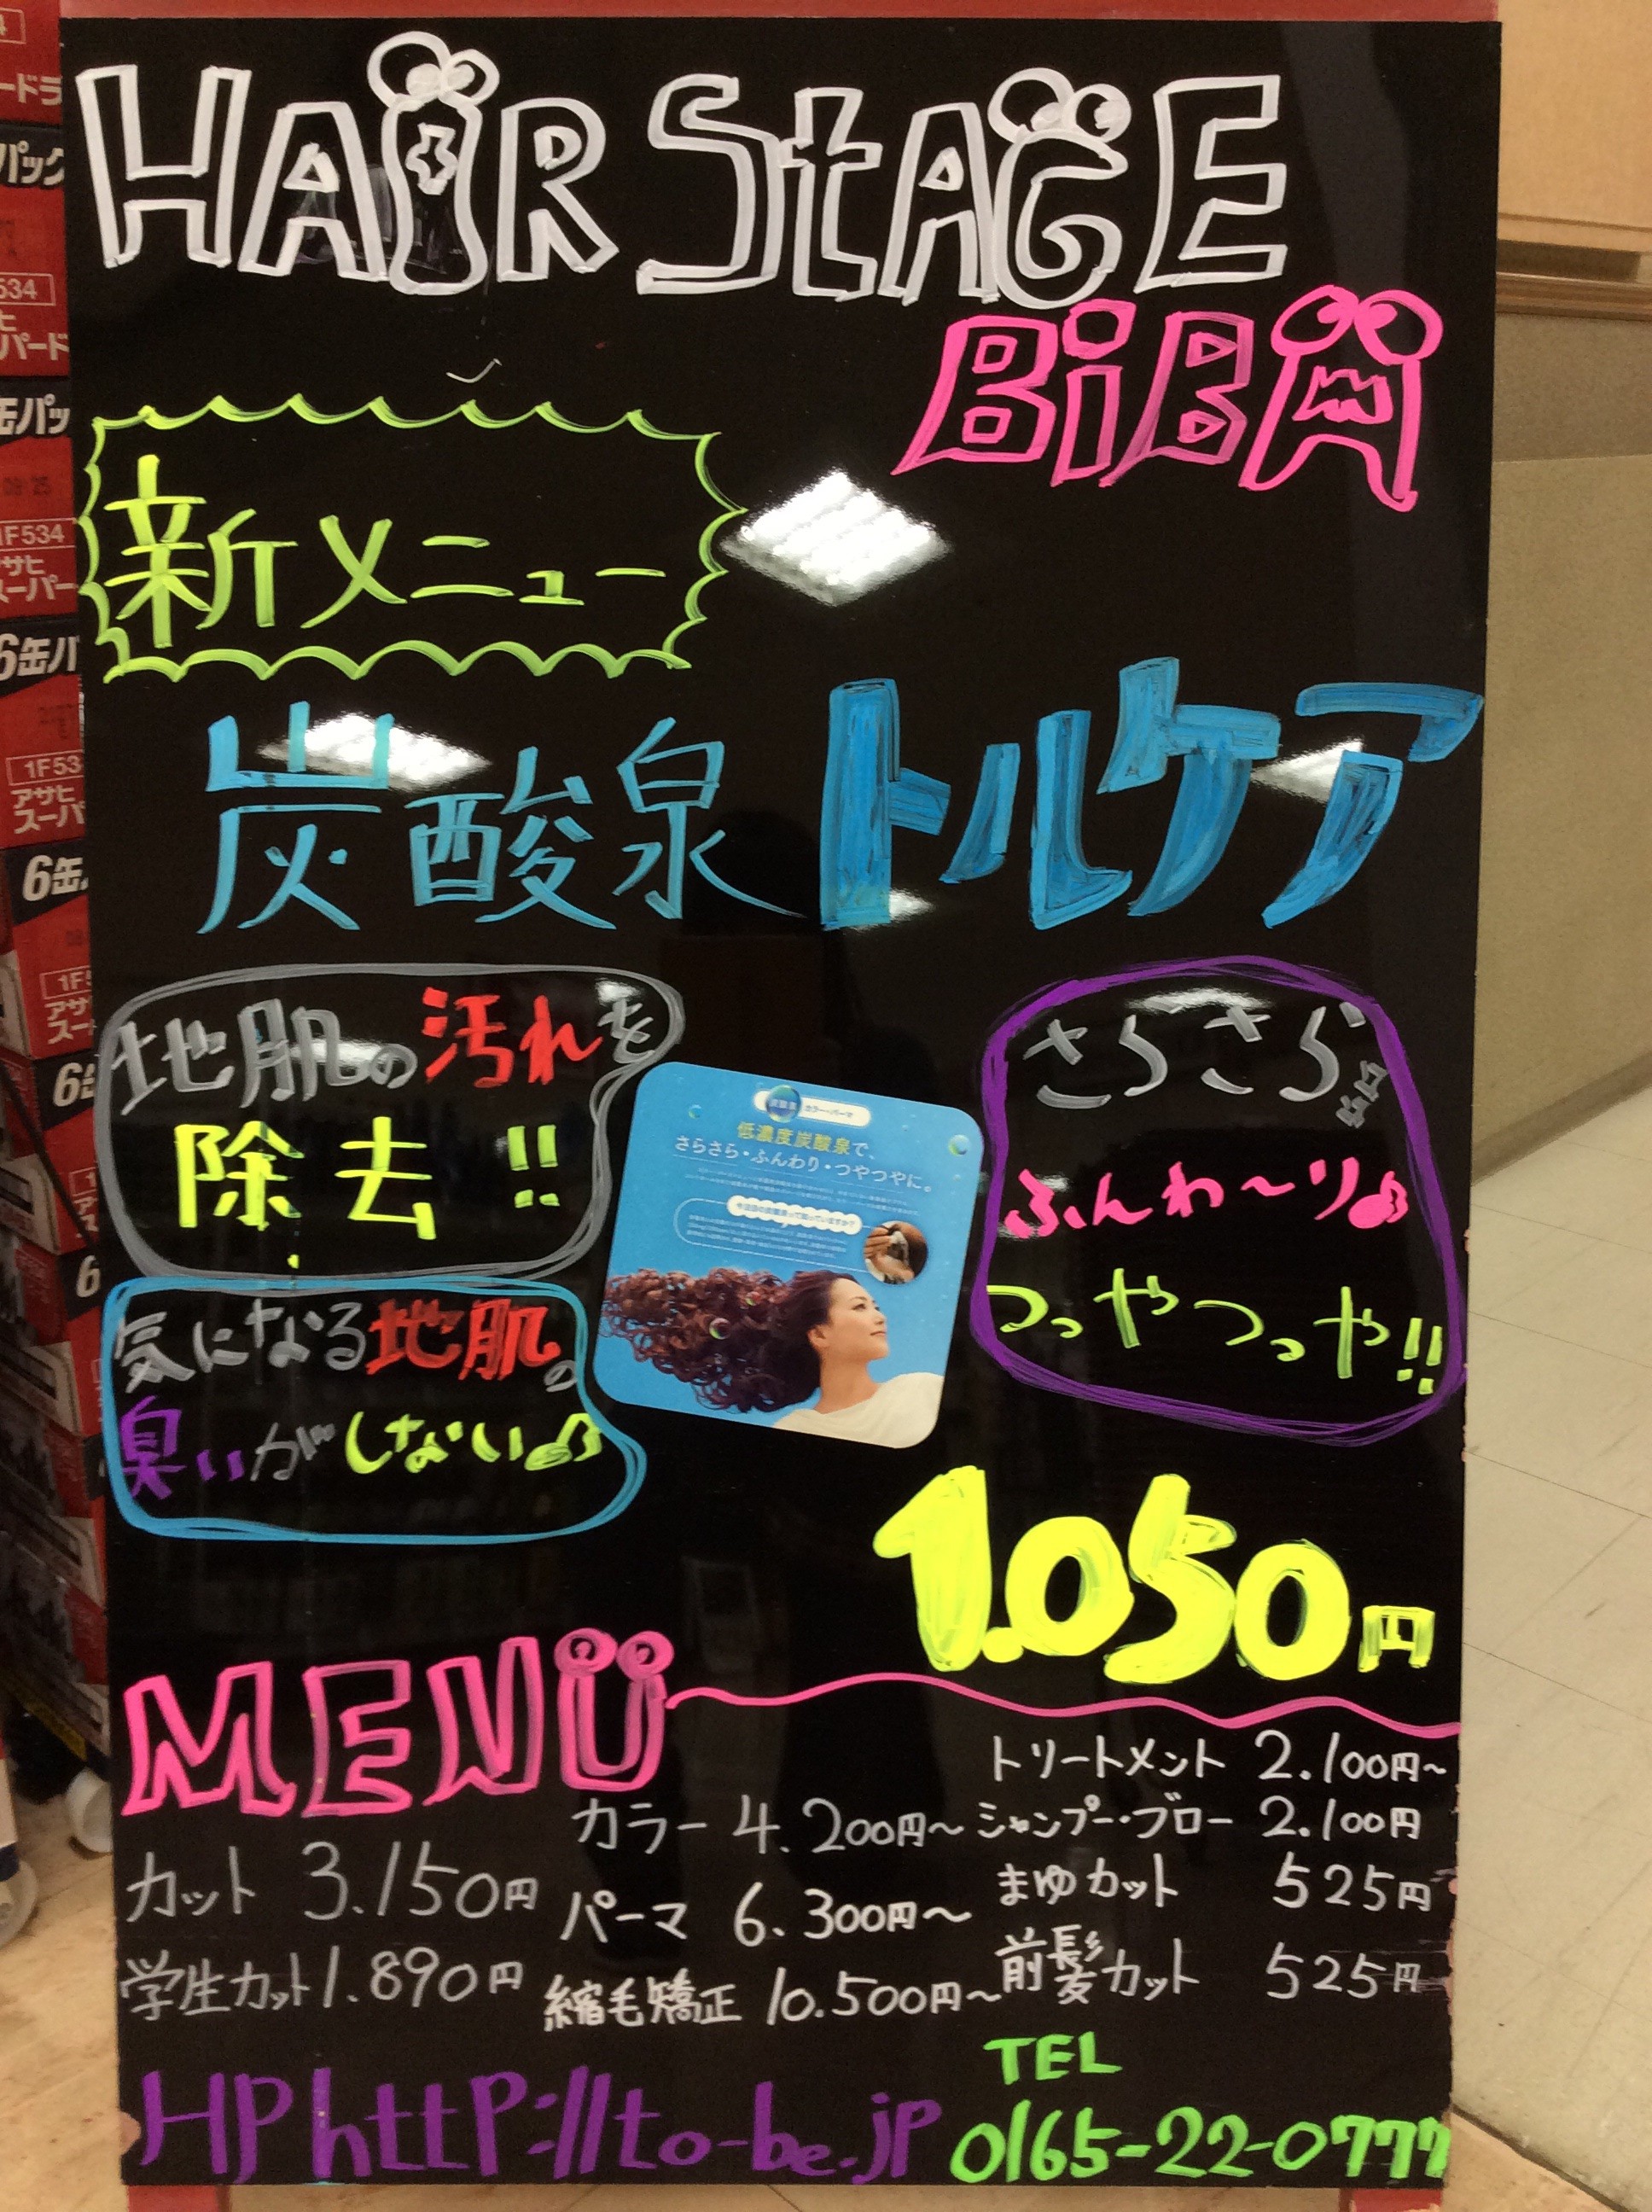 HAiR StAGE
BiBA
新メニュー
炭酸泉トルケア
地肌の汚れを
除去!!
気になる地肌の
臭いがしない♫
さらさら
ふんわ〜り♫
つっやつっや!!
カラー・パーマ
低濃度炭酸泉で、
さらさら・ふんわり・つやつやに。
1.050円
MENU
カット 3.150円
学生カット 1.890円
カラー 4.200円〜
パーマ 6.300円〜
縮毛矯正 10.500円〜
トリートメント 2.100円〜
シャンプー・ブロー 2.100円
まゆカット 525円
前髪カット 525円
HP http://to-be.jp
TEL
0165-22-0777
ードラ
パック
534
パード
缶パッ
1F534
サヒ
スーパー
6缶パ
1F53
アサヒ
スーパ
6缶